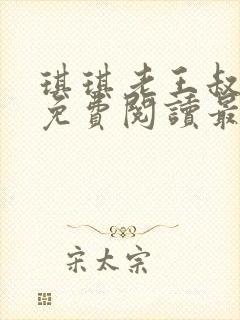 琪琪老王叔
免費閱讀最
宋太宗